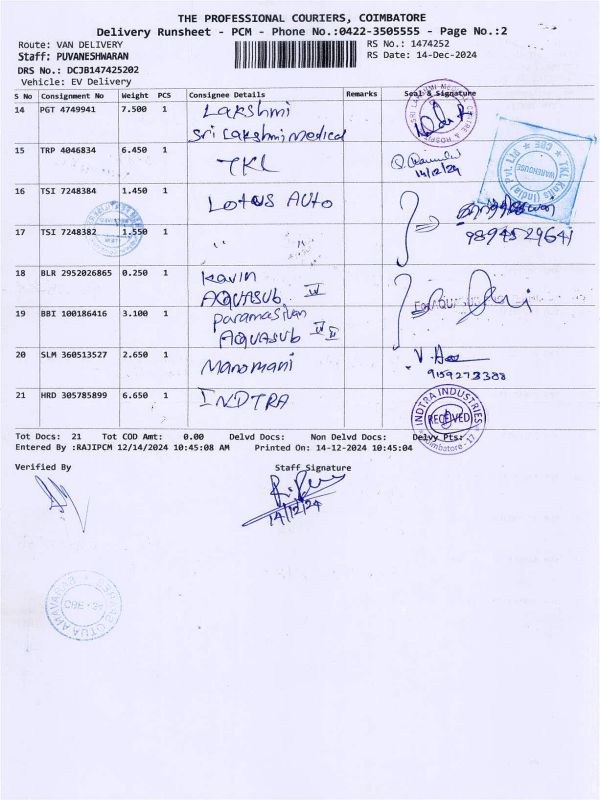 THE PROFESSIONAL COURIERS, COIMBATORE
Delivery Runsheet - PCM - Phone No.:0422-3505555 - Page No.:2
Route: VAN DELIVERY
RS No.: 1474252
Staff: PUVANESHWARAN
RS Date: 14-Dec-2024
DRS No.: DCJB147425202
Vehicle: EV Delivery
S No Consignment No Weight PCS Consignee Details Remarks Seal & Signature
14 PGT 4749941 7.500 1 Lakshmi
Sri Lakshmi medical
15 TRP 4046834 6.450 1 TKL
14/12/24
TKL Knits (India) Pvt. Ltd
WAREHOUSE
CBE
16 TSI 7248384 1.450 1 Lotus Auto
17 TSI 7248382 1.550 1 "
9894529641
18 BLR 2952026865 0.250 1 Kavin
AQUASUB IV
19 BBI 100186416 3.100 1 Paramasivan
AQUASUB
20 SLM 360513527 2.650 1 Manomani
9159273388
21 HRD 305785899 6.650 1 INDTRA
INDTRA INDUSTRIES
RECEIVED
Coimbatore - 17
Tot Docs: 21 Tot COD Amt: 0.00 Delvd Docs: Non Delvd Docs: Delvy Pts:
Entered By :RAJIPCM 12/14/2024 10:45:08 AM Printed On: 14-12-2024 10:45:04
Verified By Staff Signature
14/12/24